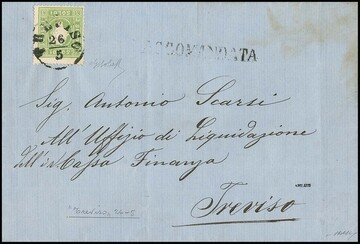 TREVISO
26
5
RACCOMANDATA
Sig. Antonio Scarsi
All' Uffizio di Liquidazione
dell' i.r. Cassa Finanza
Treviso